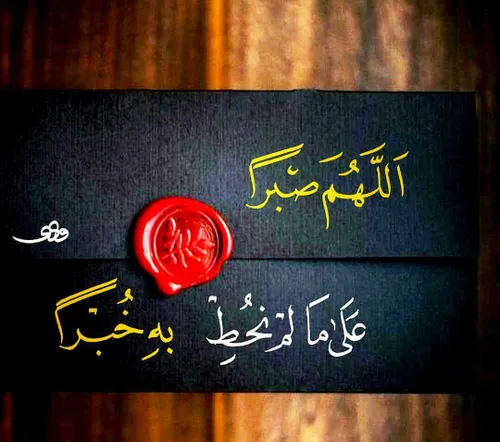 اَللَّهُمَ صَبْراً
عَلَىٰ مَا لَمْ نُحِطْ بِهِ خُبْراً